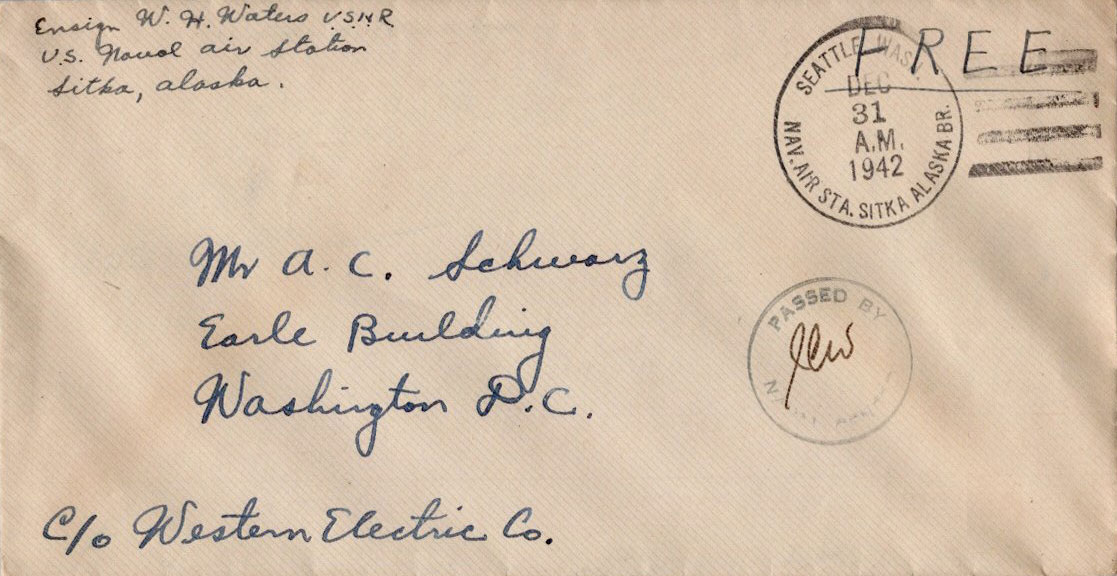 Ensign W. H. Waters USNR
U.S. Naval air Station
Sitka, alaska.
FREE
SEATTLE, WASH.
DEC
31
A.M.
1942
NAV. AIR STA. SITKA ALASKA BR.
Mr A. C. Schwarz
Earle Building
Washington D.C.
PASSED BY
NAVAL
C/o Western Electric Co.